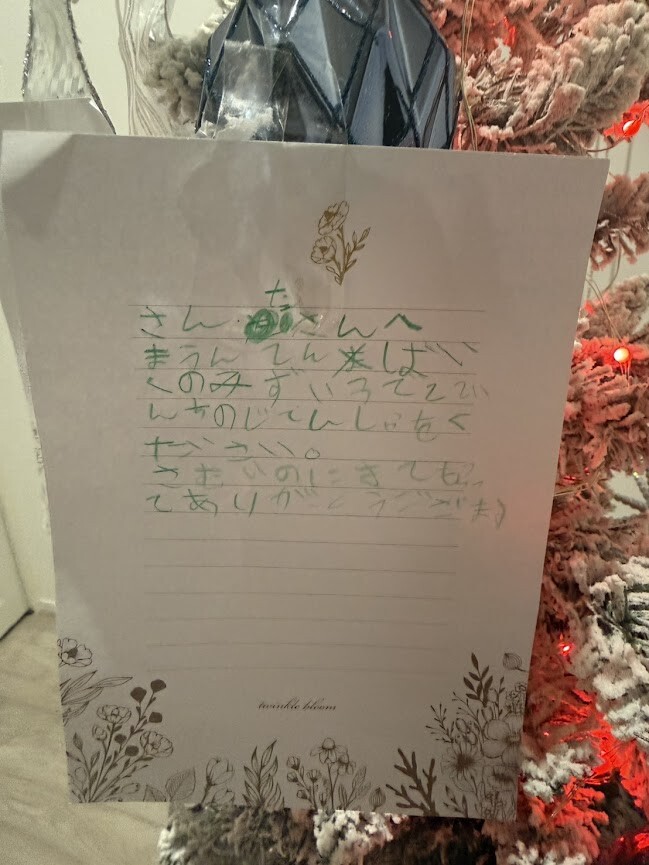 さんたさんへ
まうんてんばい
くのみずいろで22い
んちのじてんしゃをく
ださい。
さむいのにきてもらっ
てありがとうござます
twinkle bloom